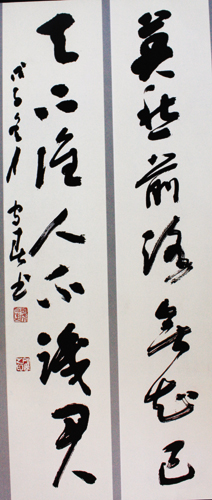 莫愁前路無知己
天下誰人不識君
戊子冬月